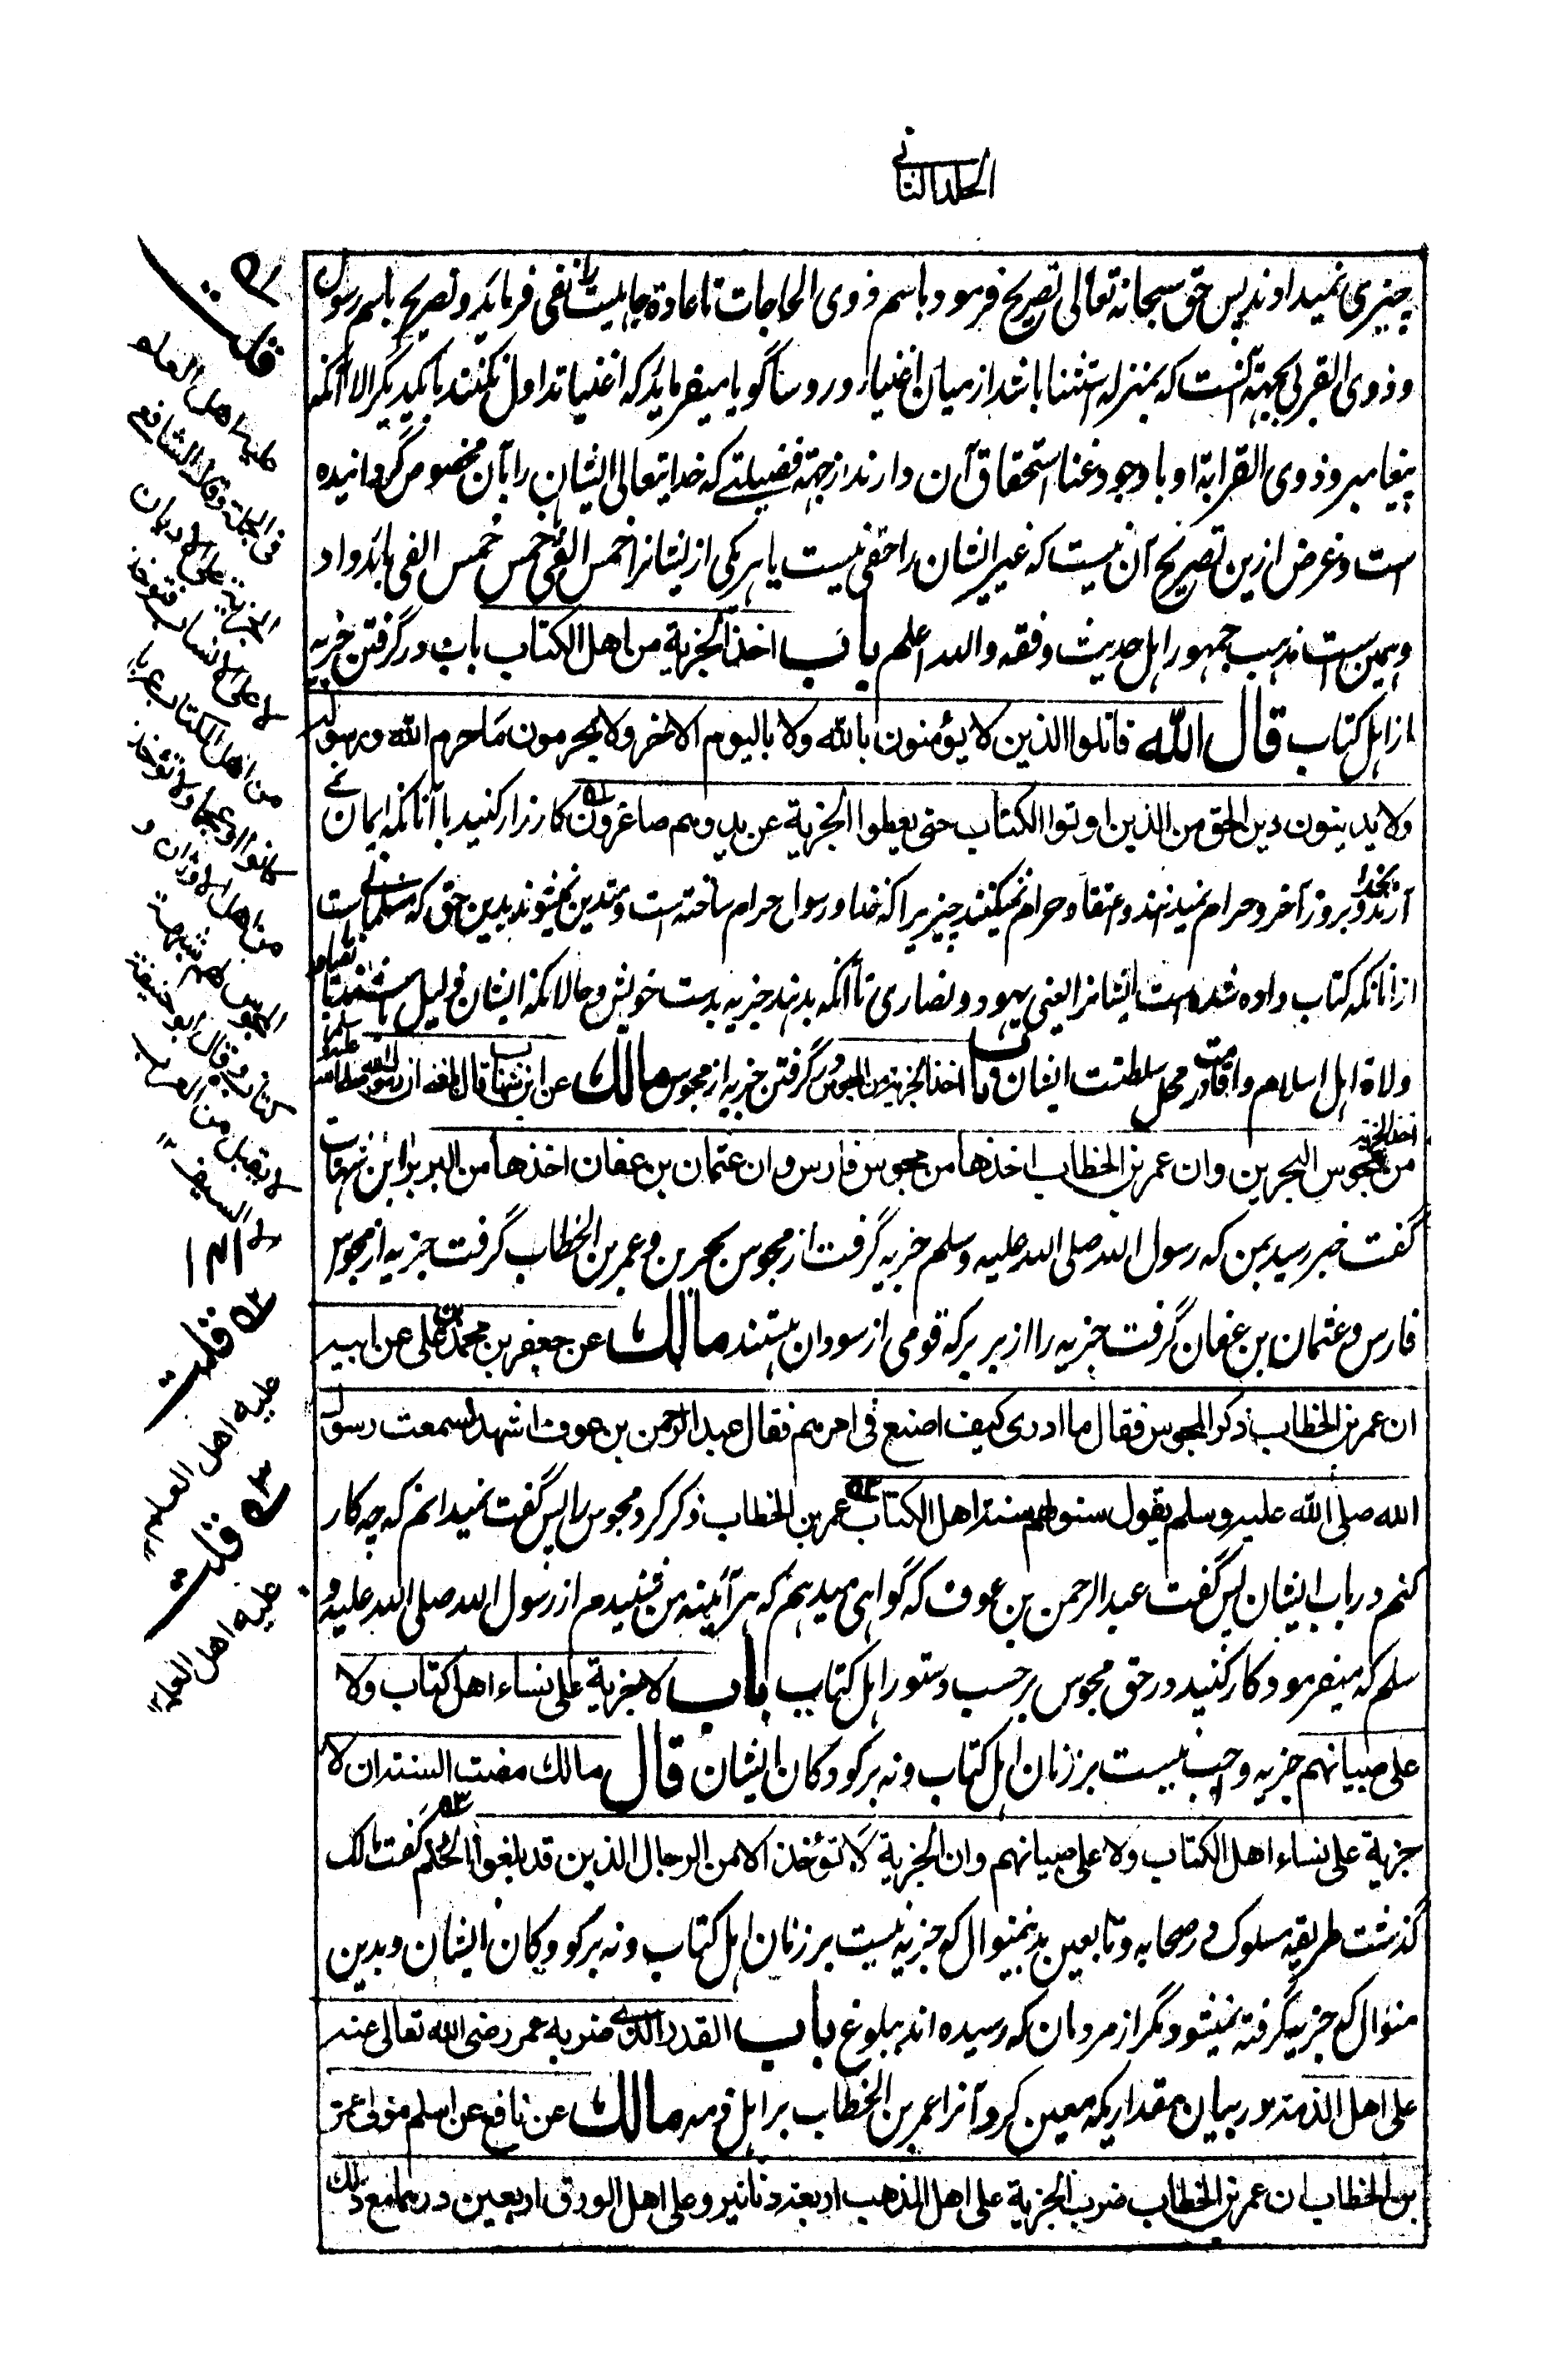 الجلد الثاني
چیزی نمیدادند پس حق سبحانه تعالی تصریح فرمود باسم ذوی الحاجات تا عادة جاهلیت را نفی فرماید و تصریح باسم رسول
و ذوی القربی بجهة آنست که بمنزله استثنا باشد از میان اغنیا و روسا گویا میفرماید که اغنیا تداول نکنند با یکدیگر الا آنکه
پیغامبر و ذوی القرابة او با وجود غنا استحقاق آن دارند از جهة فضیلتے که خدایتعالی ایشان را بآن مخصوص گردانیده
است و غرض ازین تصریح آن نیست که غیر ایشان را حقی نیست یا هر یکی از ایشانرا خمس الفئ خمس خمس الفی باید داد
و همین ست مذهب جمهور اهل حدیث و فقه و الله اعلم باب اخذ الجزية من اهل الكتاب باب در گرفتن جزیه
از اهل کتاب قال الله قاتلوا الذين لا يؤمنون بالله ولا باليوم الاخر ولا يحرمون ما حرم الله ورسوله
ولا يدينون دين الحق من الذين اوتوا الكتاب حتى يعطوا الجزية عن يد وهم صاغرون کارزار کنید با آنانکه ایمان نمے
آرند بخدا و بروز آخر و حرام نمیدانند و اعتقاد حرام نمیکنند چیزیرا که خدا و رسول حرام ساخته است و متدین نمیشوند بدین حق که مسلمانی ست
از انانکه کتاب داده شده است ایشانرا یعنی یهود و نصاری تا آنکه بدهند جزیه بدست خویش و حالانکه ایشان ذلیل باشند بتقید
ولاة اهل اسلام و اقامت در محل سلطنت ایشان باب اخذ الجزية من المجوس گرفتن جزیه از مجوس مالك عن ابن شهاب قال بلغنى ان رسول الله صلى الله عليه وسلم
اخذ الجزية من مجوس البحرين وان عمر بن الخطاب اخذها من مجوس فارس وان عثمان بن عفان اخذها من البربر ابن شهاب
گفت خبر رسید بمن که رسول الله صلی الله علیه وسلم جزیه گرفت از مجوس بحرین و عمر بن الخطاب گرفت جزیه از مجوس
فارس و عثمان بن عفان گرفت جزیه را از بربر که قومی از سودان هستند مالك عن جعفر بن محمد بن على عن ابيه
ان عمر بن الخطاب ذكر المجوس فقال ما ادرى كيف اصنع فى امرهم فقال عبد الرحمن بن عوف اشهد لسمعت رسول
الله صلى الله عليه وسلم يقول سنوا بهم سنة اهل الكتاب عمر بن الخطاب ذکر کرد مجوس را پس گفت نمیدانم که چه کار
کنم در باب ایشان پس گفت عبد الرحمن بن عوف که گواهی میدهم که هر آئینه من شنیدم از رسول الله صلی الله علیه و
سلم که میفرمود کار کنید در حق مجوس بر حسب دستور اهل کتاب باب لا جزية على نساء اهل كتاب ولا
على صبيانهم جزیه واجب نیست بر زنان اهل کتاب و نه بر کودکان ایشان قال مالك مضت السنة ان لا
جزية على نساء اهل الكتاب ولا على صبيانهم وان الجزية لا تؤخذ الا من الرجال الذين قد بلغوا الحلم گفت مالک
گذشت طریقه مسلوک در صحابه و تابعین بدینمنوال که جزیه نیست بر زنان اهل کتاب و نه بر کودکان ایشان و بدین
منوال که جزیه گرفته نمیشود مگر از مردمان که رسیده اند ببلوغ باب القدر الذى ضربه عمر رضى الله تعالى عنه
على اهل الذمة در بیان مقداریکه معین کرد آنرا عمر بن الخطاب بر اهل ذمه مالك عن نافع عن اسلم مولى عمر
بن الخطاب ان عمر بن الخطاب ضرب الجزية على اهل الذهب اربعة دنانير وعلى اهل الورق اربعين درهما مع ذلك
قلت
عليه اهل العلم
فى الجملة وقال الشافعى
الجزية على الاديان
لا على الانساب فتؤخذ
من اهل الكتاب عربا
كانوا او عجما ولا تؤخذ
من اهل الاوثان و
المجوس لهم شبهة
كتاب وقال ابو حنيفة
لا يقبل من العرب
الا السيف ١٢
قلت
عليه اهل العلم
قلت
عليه اهل العلم